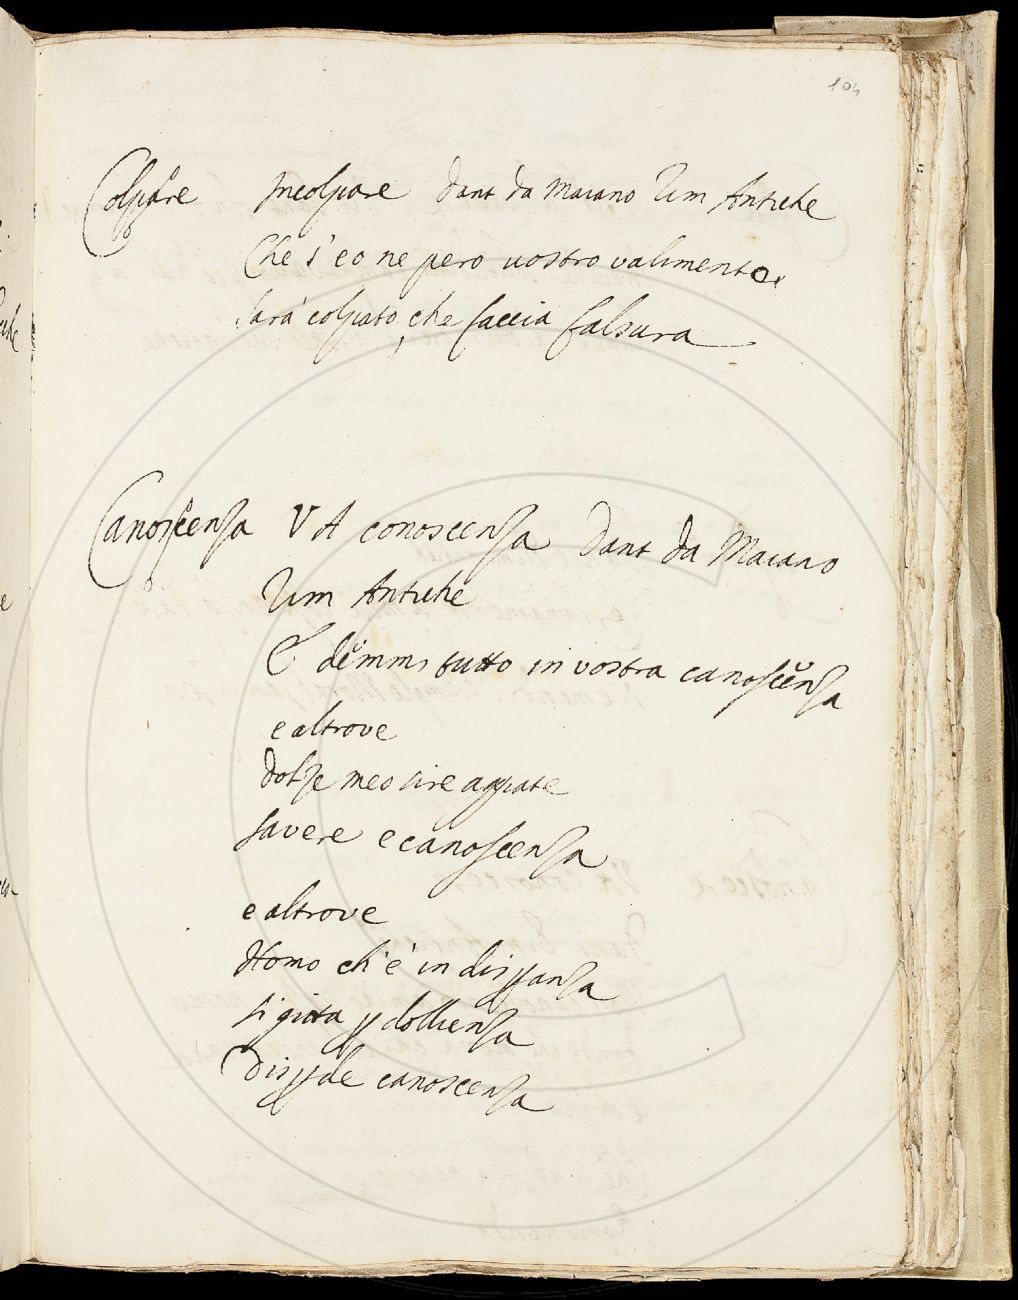 104
Colpare Incolpare Dant da Maiano Rim Antiche
Che s'eo ne pero vostro valimento
sarà colpato, che faccia falsura
Canoscenza VA conoscenza Dant da Maiano
Rim Antiche
E demmi tutto in vostra canoscenza
e altrove
dolze meo sire aggiate
savere e canoscenza
e altrove
Homo ch'è in
si gitta
canoscenza